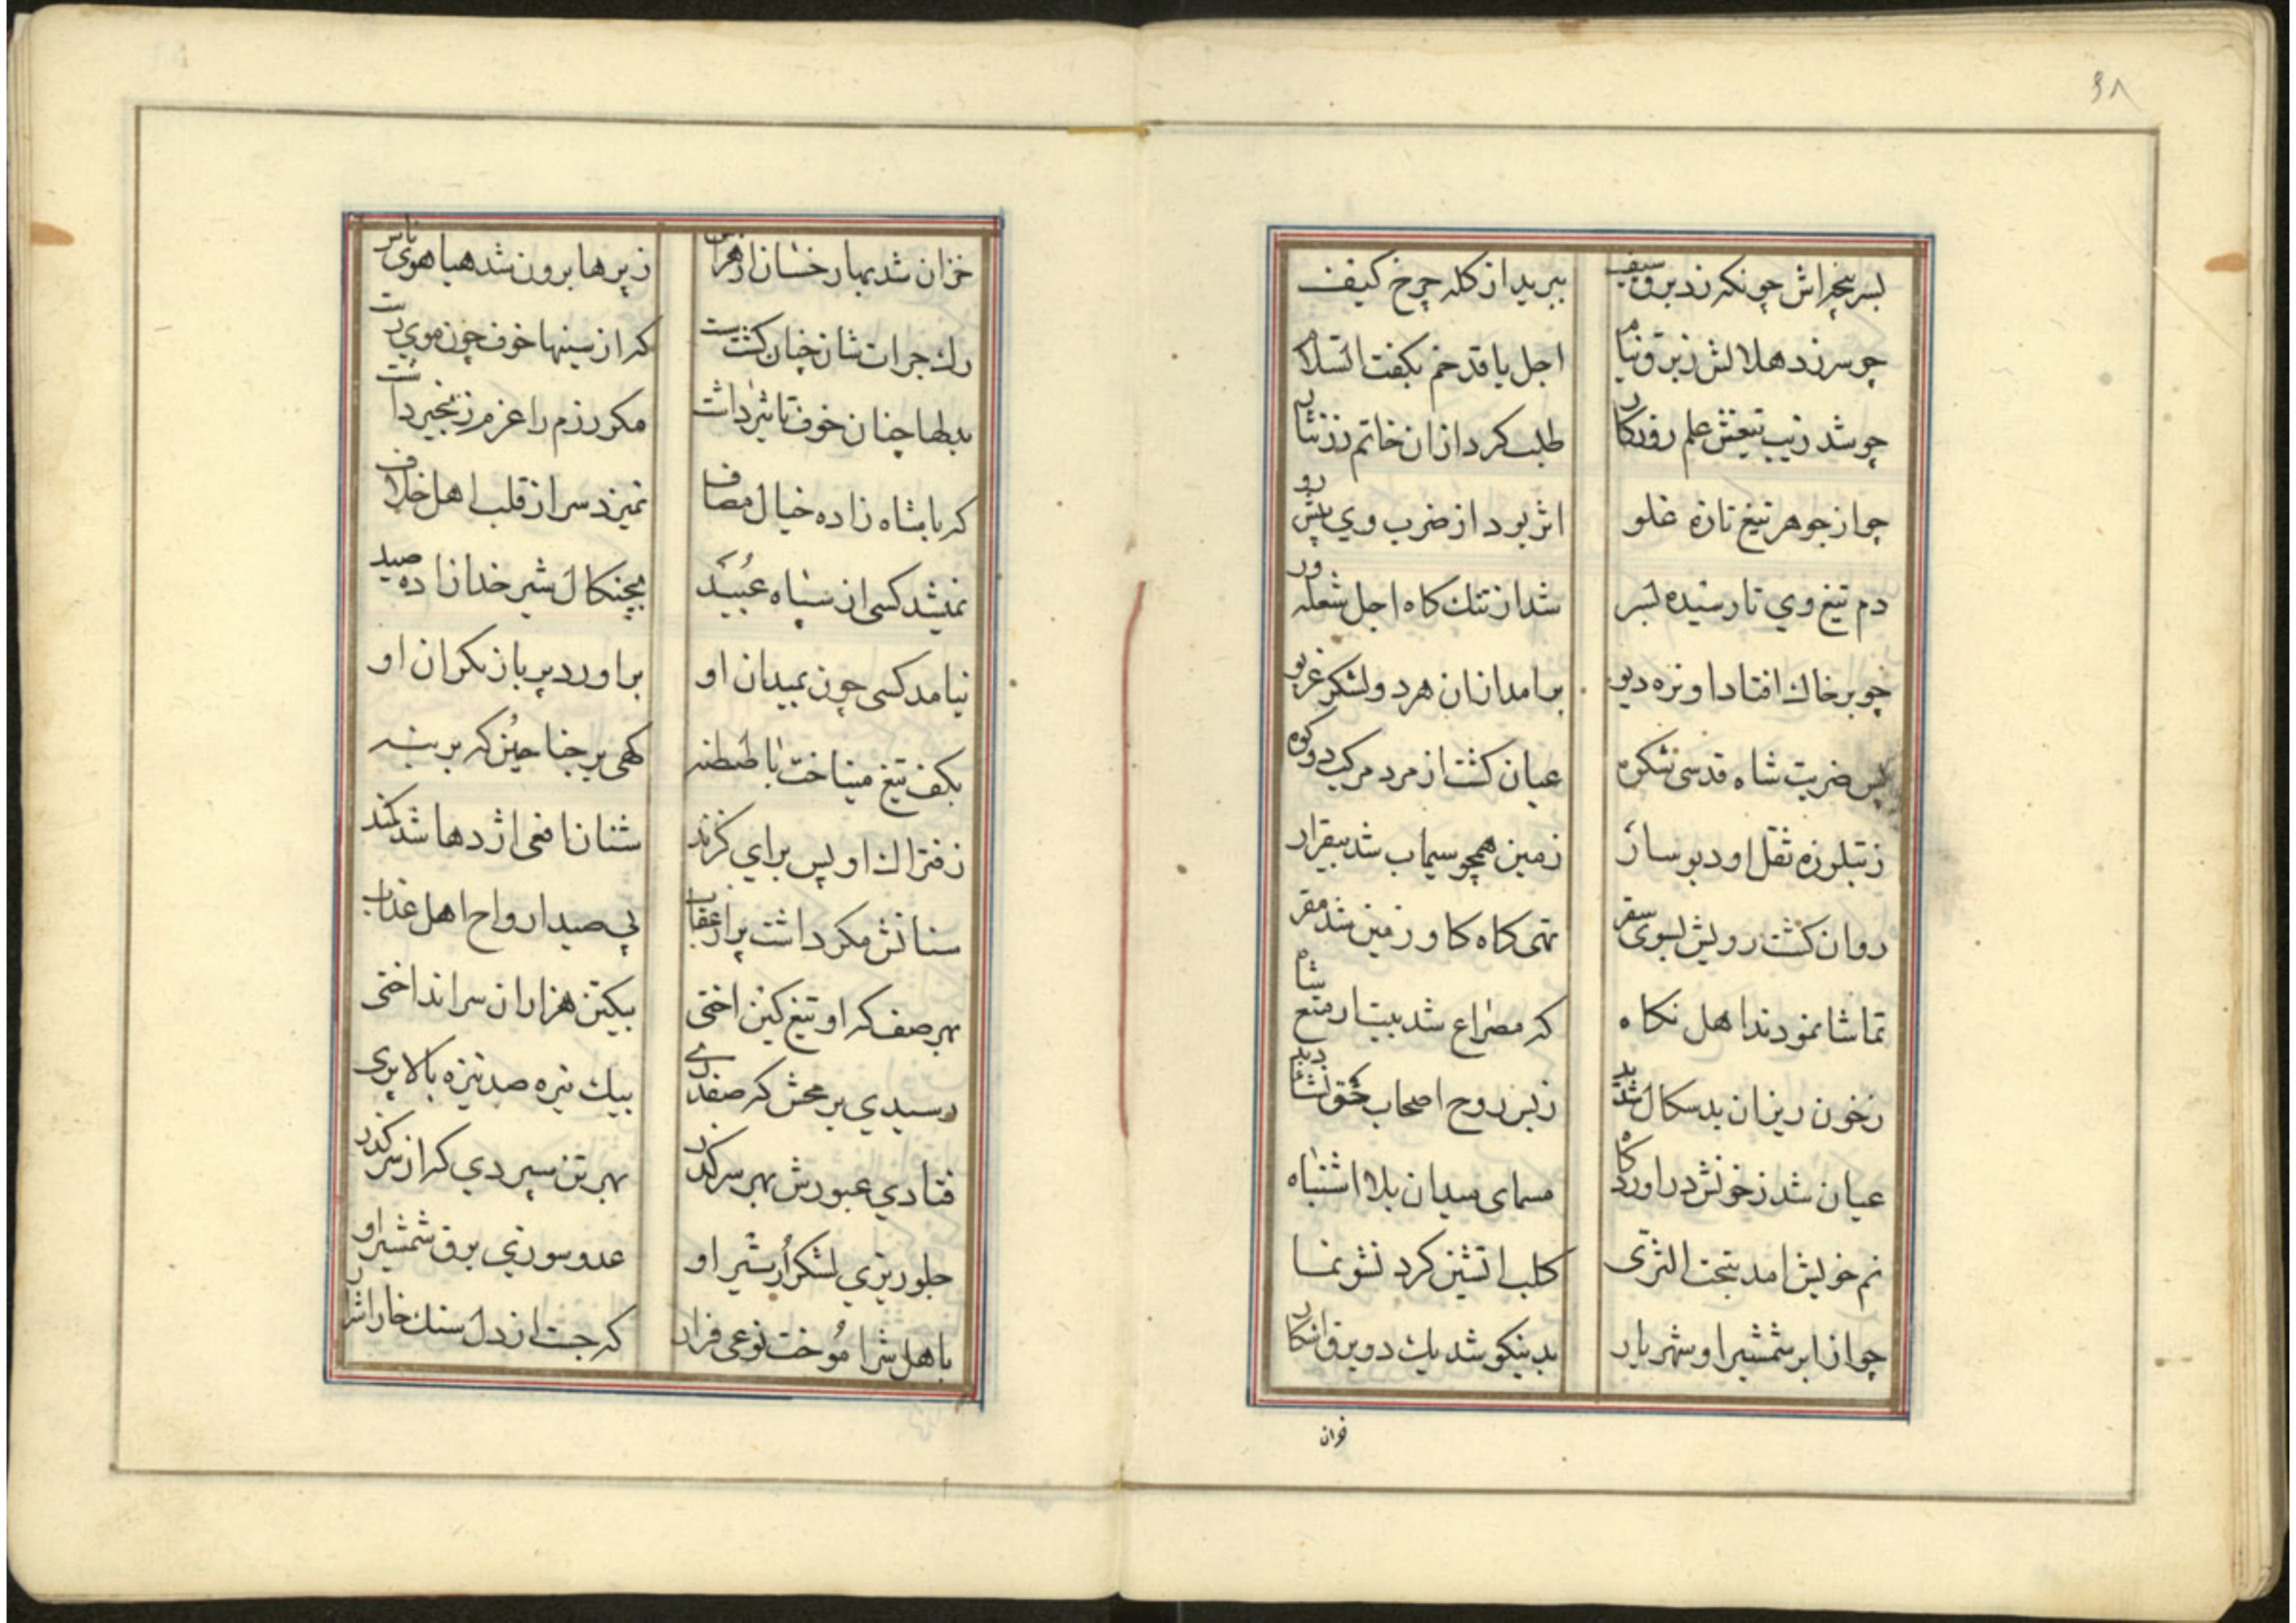 ۴۸
بسر پنجه‌اش چونکه زد برق سیف ببرید از کله چرخ کیف
چو سر زد هلالش ز برق نیام اجل با قد خم بگفت السلام
چو شد زیب تیغش علم روزکار طلب کرد ازان خاتم زرنثار
چو از جوهر تیغ تازه غلو اثر بود از ضرب وی پیش رو
دم تیغ وی تا رسیده بسر شد از تنك کاه اجل شعله‌ور
چو بر خاك افتاد او نره دیو برامد ازان هر دو لشکر غریو
پس ضربت شاه قدسی شکوه عیان کشت از مرد مرکب دو کوه
ز ثقل او دیو سار زمین همچو سیماب شد بیقرار
روان کشت رویش بسوی سقر تهی کاه کاو زمین شد مقر
تماشا نمودند اهل نکاه که مصراع شد بیت
زخون ریزان بد سکال ز بس روح اصحاب
عیان شد ز خونش در اوردکاه مسمای میدان بلا اشتباه
نم خویش امد بتحت الثری کلب اتشین کرد نشو نما
چو از ابر شمشیر او شهریار بدینکو شد یك دو برق اشکار
فزان
خزان شد بهار رخشان از هراس ز پرها برون شد هیاهوی یاس
رك جرات شان چنان کشت سست که از سینها خوف چون موی رست
بدلها چنان خوف تاثیر داشت مکر رزم را عزم زنجیر داشت
که با شاه زاده خیال مصاف نمیزد سر از قلب اهل خلاف
نمیشد کسی از سپاه عبید بچنکال شیر خدا زاده صید
نیامد کسی چون بمیدان او براورد پر باز بکران او
بکف تیغ میتاخت با طنطنه کهی بر جناحین که بر
ز فتراك او پس برای کزند شنان افعی اژدها شد کمند
سنانش مکر داشت پر از عقاب پی صید ارواح اهل عذاب
بهر صف که او تیغ کین اختی بیکتن هزاران سر انداختی
رسیدی بر محش که صفدری بیك نیزه صد نیزه بالا پری
فتادی عبورش بهر سر کذر بهر تن سپردی که از سر کذر
جلوریزی لشکر ار شیر او عدو سوزی برق شمشیر او
باهل شر اموخت نوعی فرار که جست از دل سنك خارا شرار